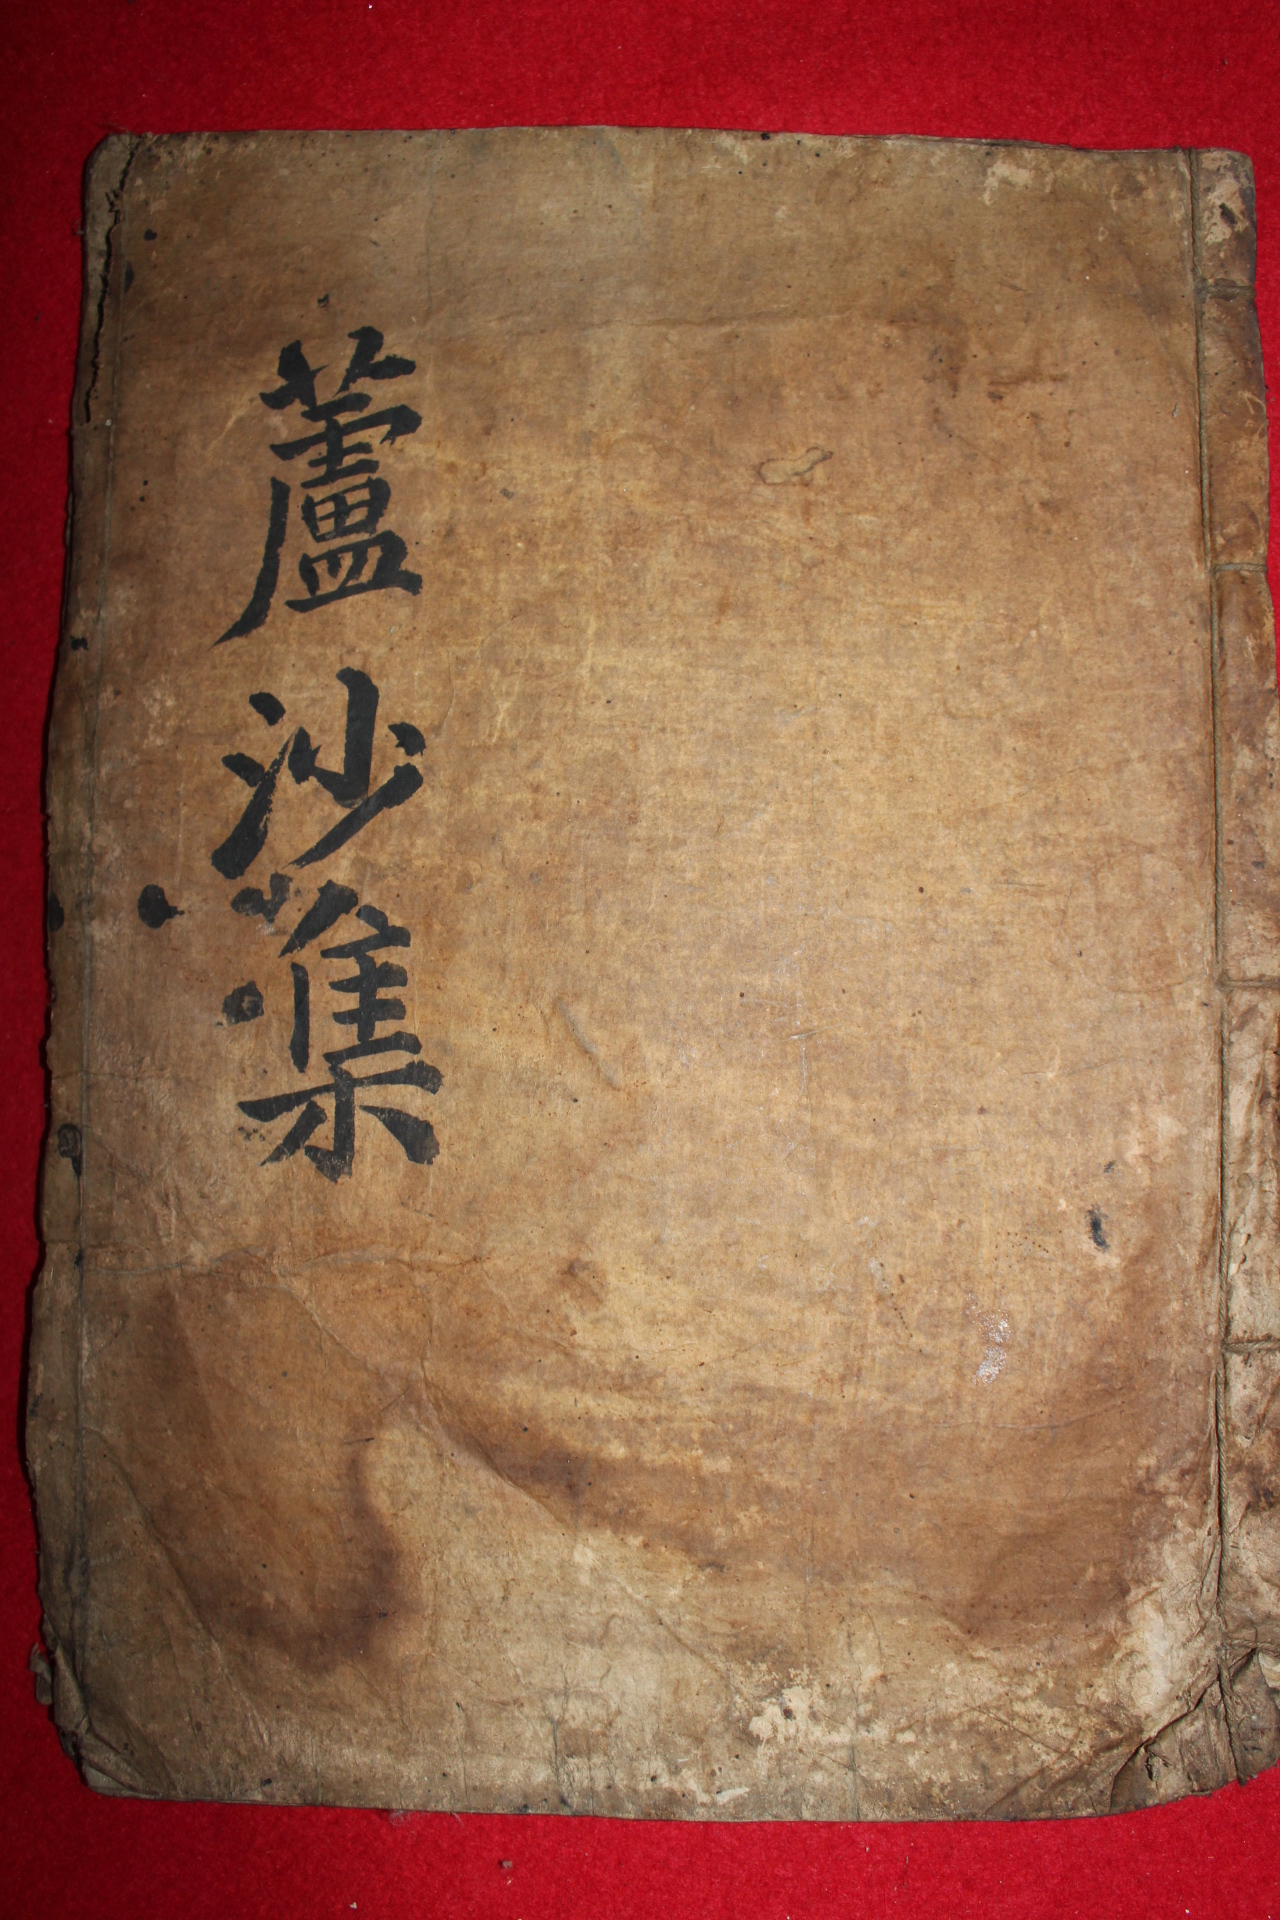 蘆沙集